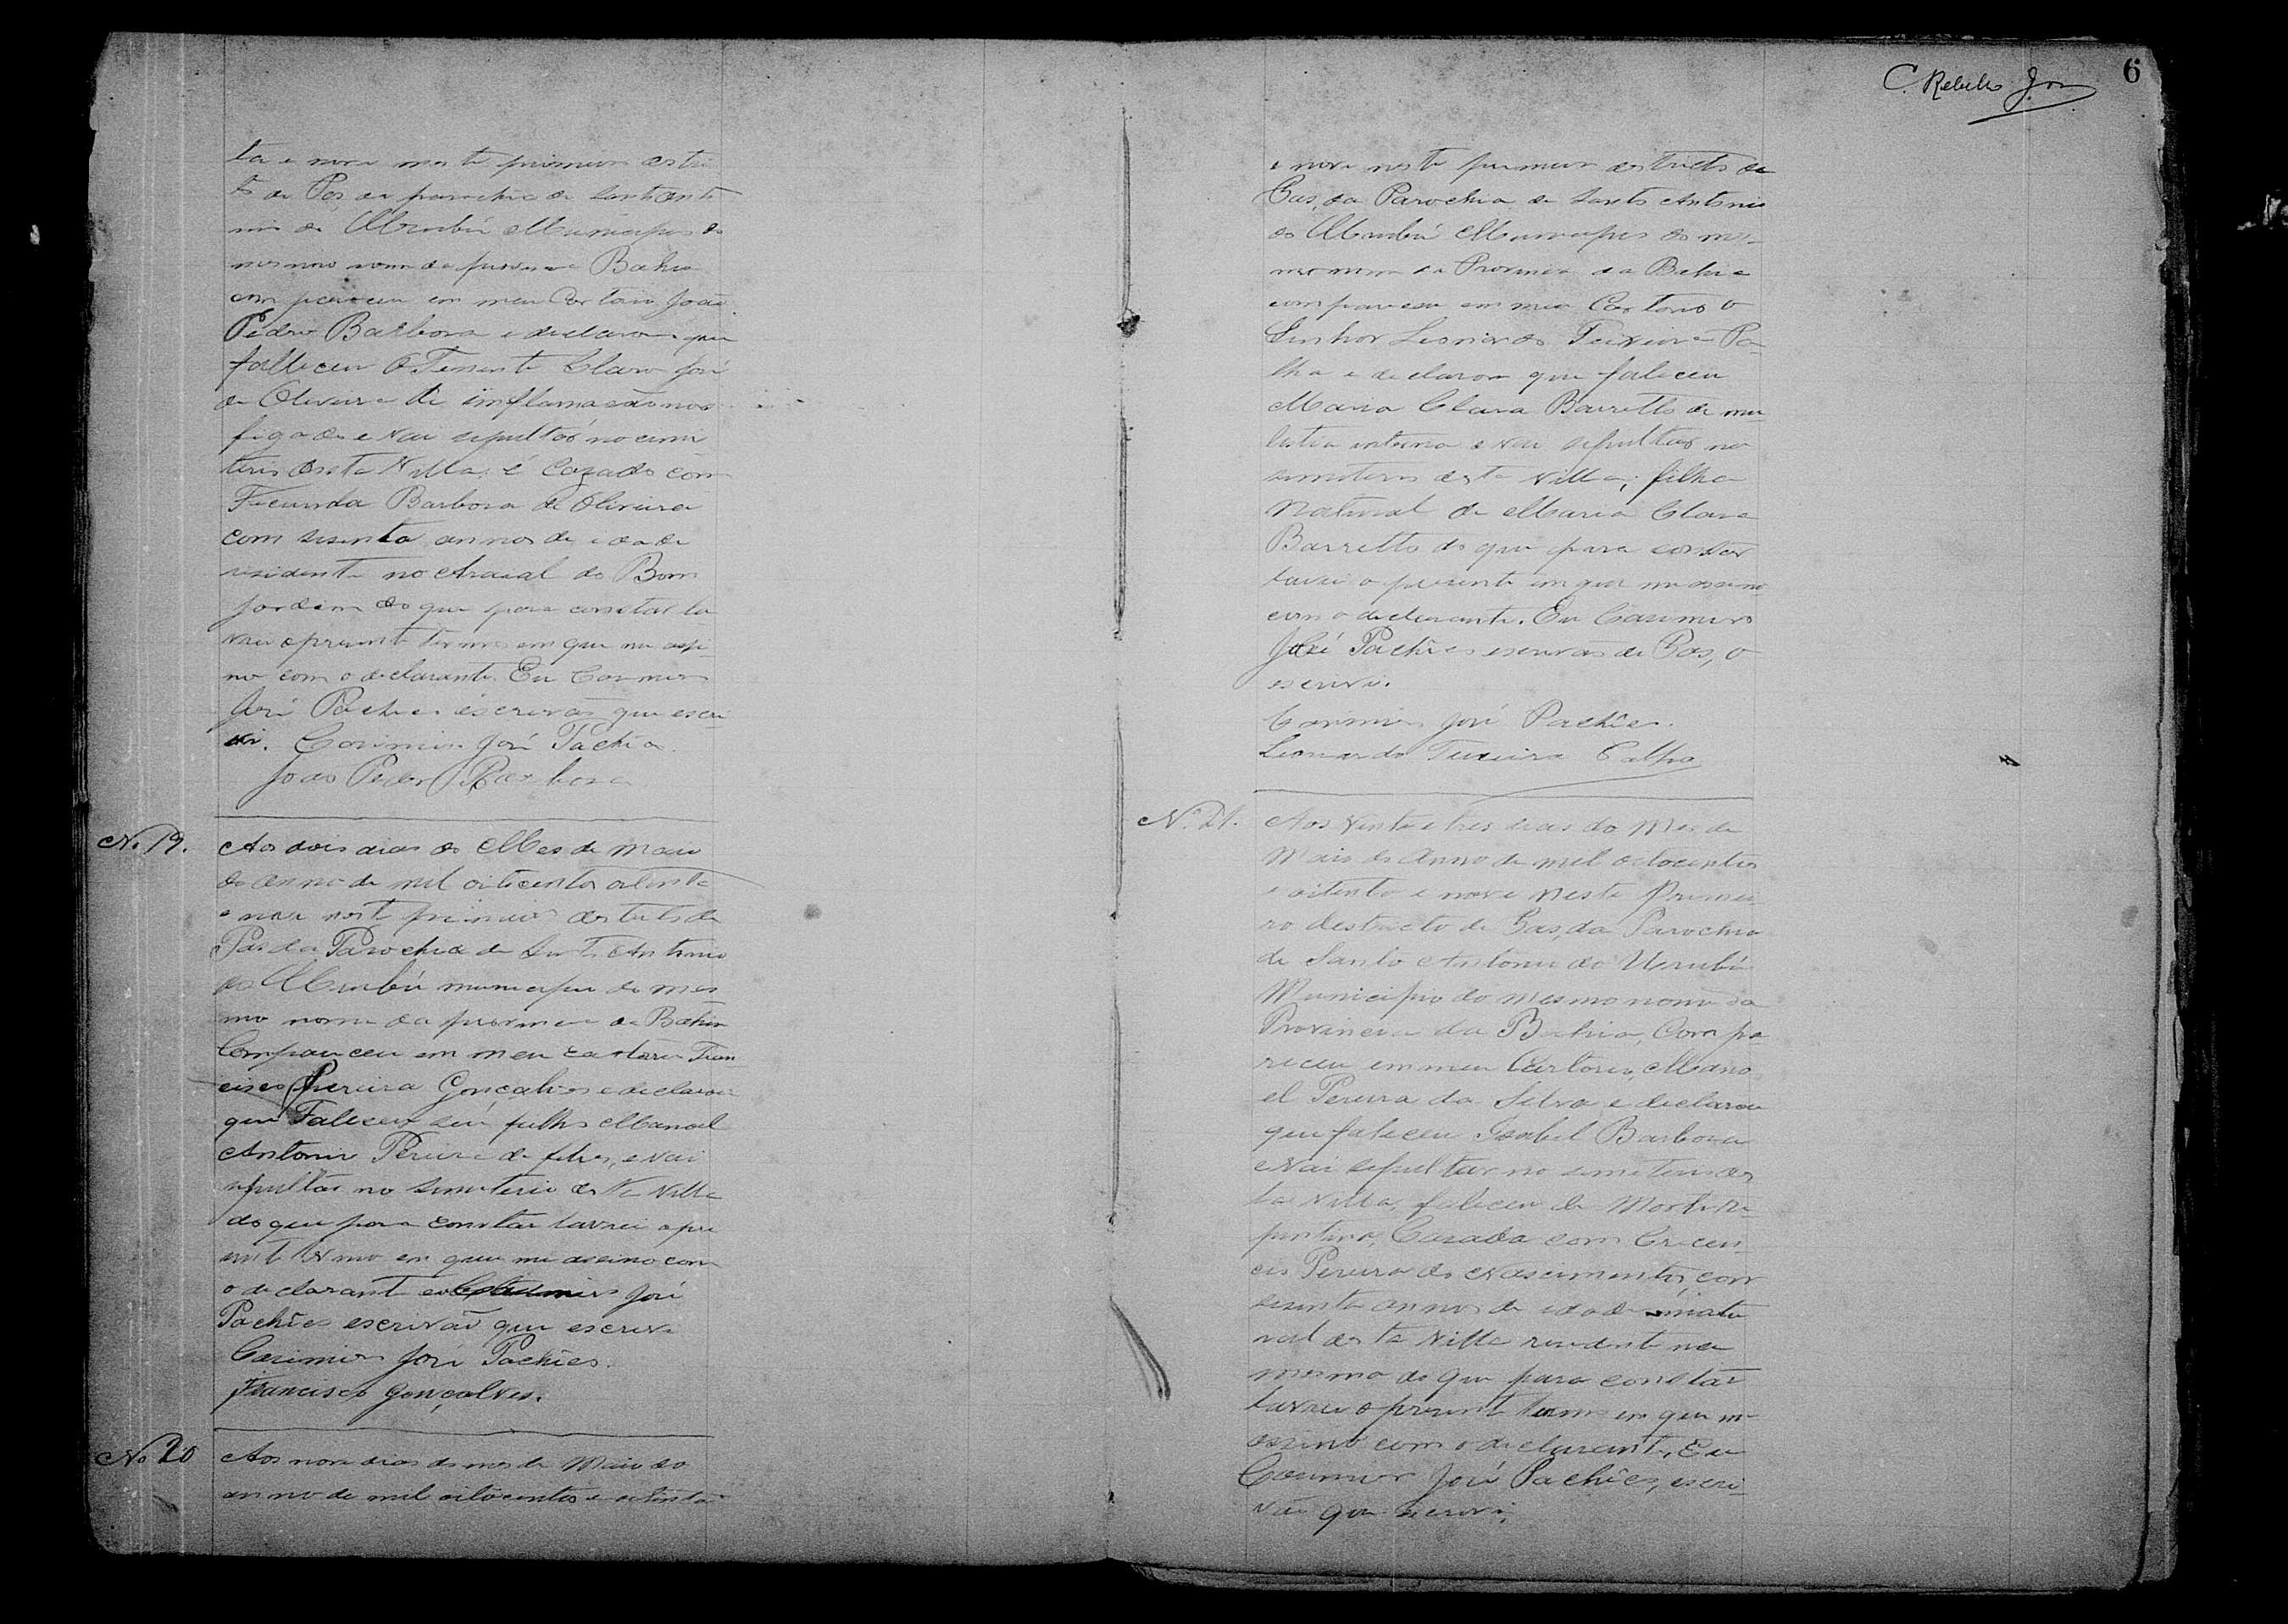 ta e nove neste primeiro distri
to de Pas, da parochia de Santo Anto
nio do Urubú Municipio do
mesmo nome da provincia Bahia
compareceu em meu Cartorio João
Pedro Barbosa e declarou que
falleceu O Tenente Claro José
de Oliveira de inflamação nos
figado e vai sepultar no cimi
terio desta Villa; é Cazado com
Facunda Barbosa de Oliveira
com sesenta annos de idade
residente no Araial do Bom
Jardim do que para constar la
vrei o presente termo em que me assi
no com o declarante. Eu Casimiro
José Pachêes escrivão que escri
vi. Casimiro José Pachêes
João Pedro Barbosa
No. 19.
Aos dois dias do Mes de Maio
do anno de mil oitocentos oitenta
e nove neste primeiro destricto de
Pas da Parochia de Santo Antonio
do Urubú municipio do mes
mo nome da provincia da Bahia
Compareceu em meu cartorio Fran
cisco Pereira Gonçalves e declarou
que Faleceu seu filho Manoel
Antonio Pereira de febre, e vai
sepultar no Semiterio desta Villa
do que para constar lavrei o pre
sente termo em que me assino com
o declarante eu Casimiro José
Pachêes escrivão que escrevi
Casimiro José Pachêes.
Francisco Gonçalves.
No 20
Aos nove dias do mes de Maio do
anno de mil oitocentos e oitenta
C. Rebello Jor
6
e nove neste primeiro destricto de
Pas, da Parochia de Santo Antonio
do Urubú Municipio do mes
mo nome da Provincia da Bahia
compareceu em meu Cartorio o
Senhor Leonardo Teixeira Pa
lha e declarou que faleceu
Maria Clara Barretto de mu
lestia interna e vai sepultar no
semiterio desta Villa; filha
Natural de Maria Clara
Barretto do que para constar
lavrei o presente em que me assino
com o declarante. Eu Casimiro
José Pachêes escrivão de Pas, o
escrevi.
Casimiro José Pachêes.
Leonardo Teixeira Palha
No. 21.
Aos Vinte e tres dias do Mes de
Maio do Anno de mil oitocentos
e oitenta e nove Neste Primei
ro destricto de Pas, da Parochia
de Santo Antonio do Urubú
Municipio do mesmo nome da
Provincia da Bahia, Compa
receu em meu Cartorio, Mano
el Pereira da Silva e declarou
que faleceu Isabel Barbosa
e Vai sepultar no semiterio des
ta Villa, faleceu de Morte re
pentina, Casada com Crecen
cio Pereira do Nascimento, com
sesenta annos de idade natu
ral desta Villa residente na
mesma do que para constar
lavrei o presente termo em que me
assino com o declarante, Eu
Casimiro José Pachêes, escri
vão que escrevi,